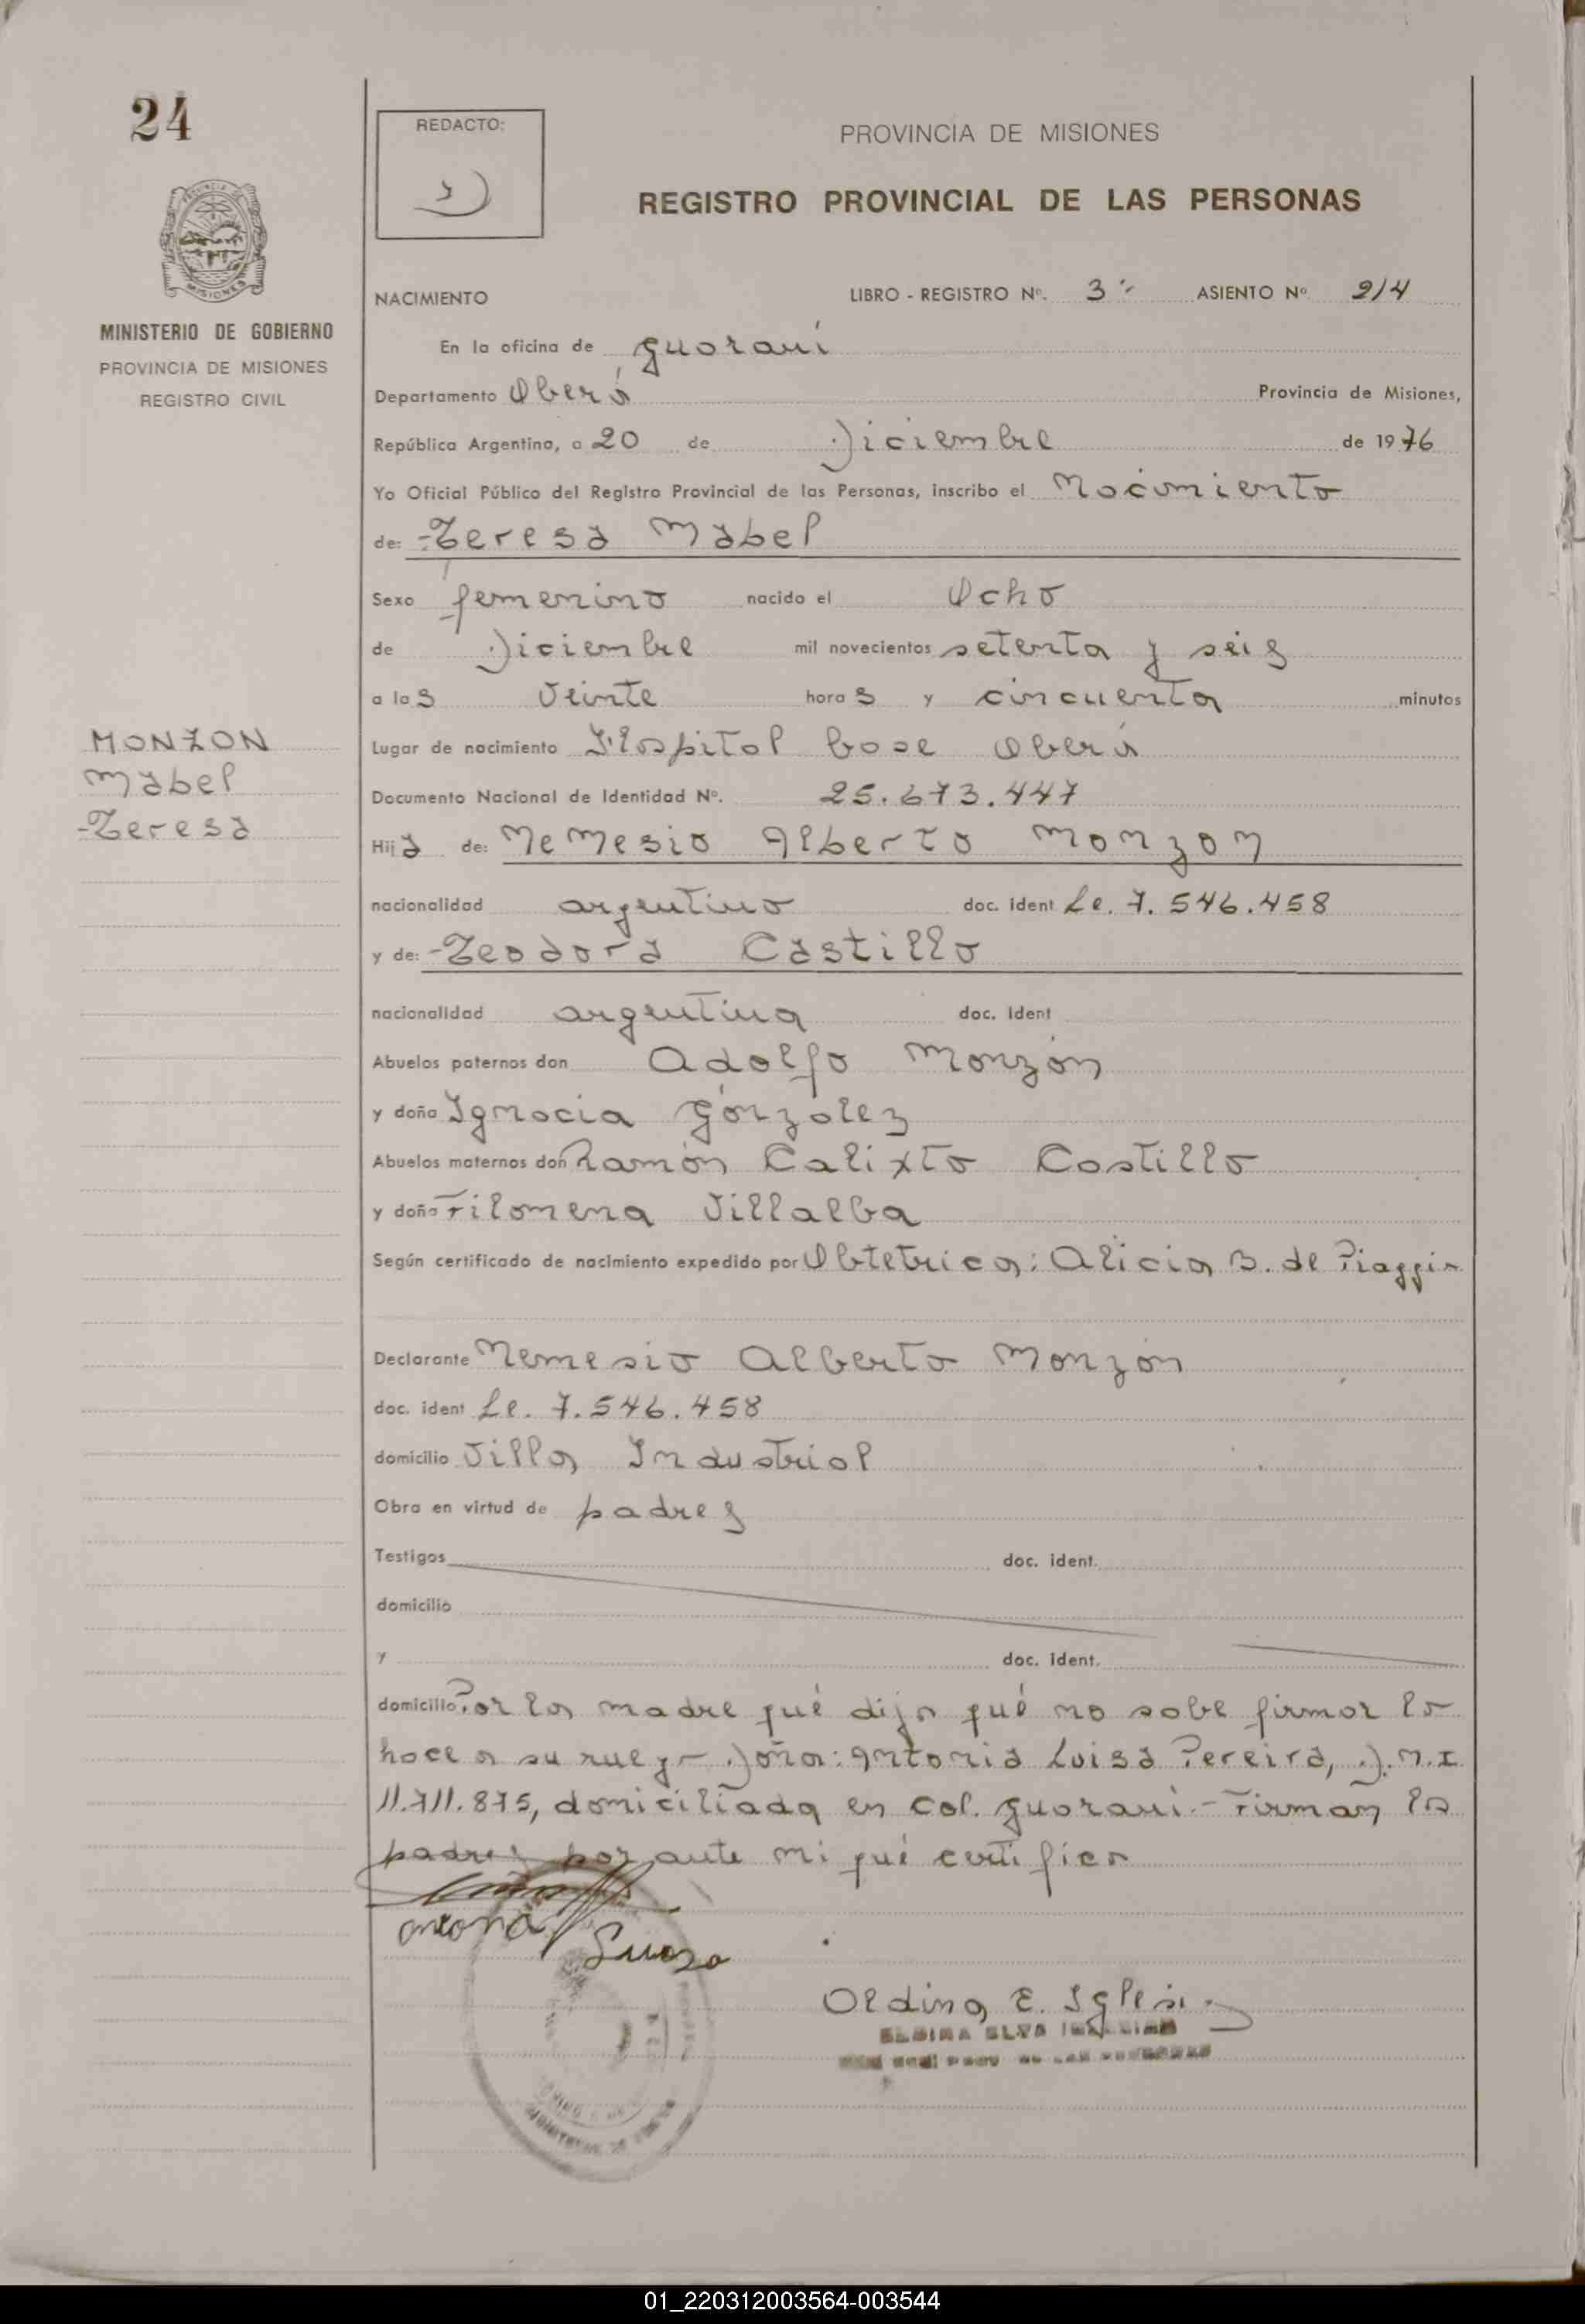 24
REDACTO:
PROVINCIA DE MISIONES
REGISTRO PROVINCIAL DE LAS PERSONAS
MISIONES
MINISTERIO DE GOBIERNO
PROVINCIA DE MISIONES
REGISTRO CIVIL
NACIMIENTO LIBRO - REGISTRO Nº. 3º ASIENTO Nº 214
En la oficina de Guaraní
Departamento Oberá Provincia de Misiones,
República Argentina, a 20 de Diciembre de 1976
Yo Oficial Público del Registro Provincial de las Personas, inscribo el Nacimiento
de: Teresa Mabel
Sexo femenino nacido el Ocho
de Diciembre mil novecientos setenta y seis
a las veinte horas y cincuenta minutos
MONZON
Mabel
Teresa
Lugar de nacimiento Hospital base Oberá
Documento Nacional de Identidad Nº. 25.673.447
Hija de: Nemesio Alberto Monzon
nacionalidad argentino doc. ident L.e. 7.546.458
y de: Teodora Castillo
nacionalidad argentina doc. ident
Abuelos paternos don Adolfo Monzón
y doña Ignacia González
Abuelos maternos don Ramón Calixto Castillo
y doña Filomena Villalba
Según certificado de nacimiento expedido por Obtetrica: Alicia B. de Piaggio
Declarante Nemesio Alberto Monzón
doc. ident L.e. 7.546.458
domicilio Villa Industrial
Obra en virtud de padres
Testigos doc. ident.
domicilio
y doc. ident.
domicilio Por la madre qué dijo qué no sabe firmar lo
hace a su ruego Doña: Antonia Luisa Pereira, D.N.I
11.711.875, domiciliada en Col. Guaraní.- Firman los
padres por ante mi qué certifico
Oldina E. Iglesi
01_220312003564-003544